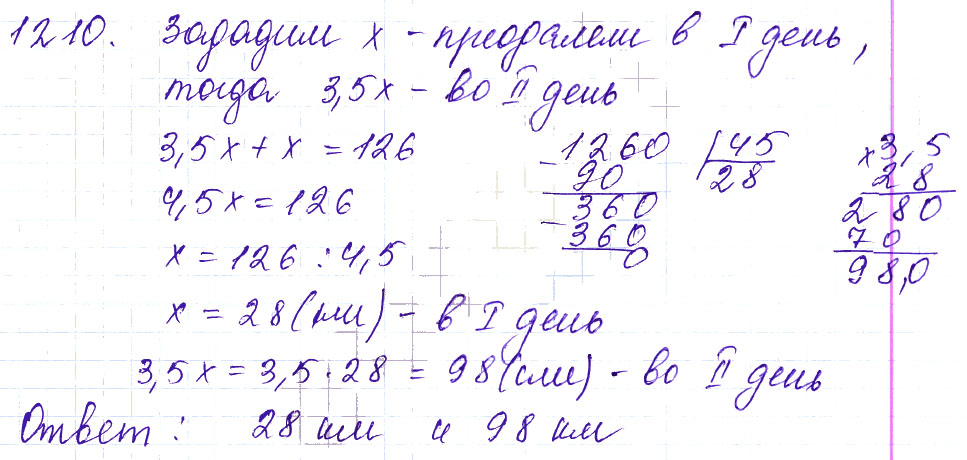 1210. Зададим х - преодалели в I день,
тогда 3,5х - во II день
3,5х + х = 126
4,5х = 126
х = 126 : 4,5
х = 28 (км) - в I день
3,5х = 3,5 · 28 = 98 (км) - во II день
Ответ: 28 км и 98 км
- 1260 | 45
90 28
- 360
360
0
х 3,5
28
280
70
98,0